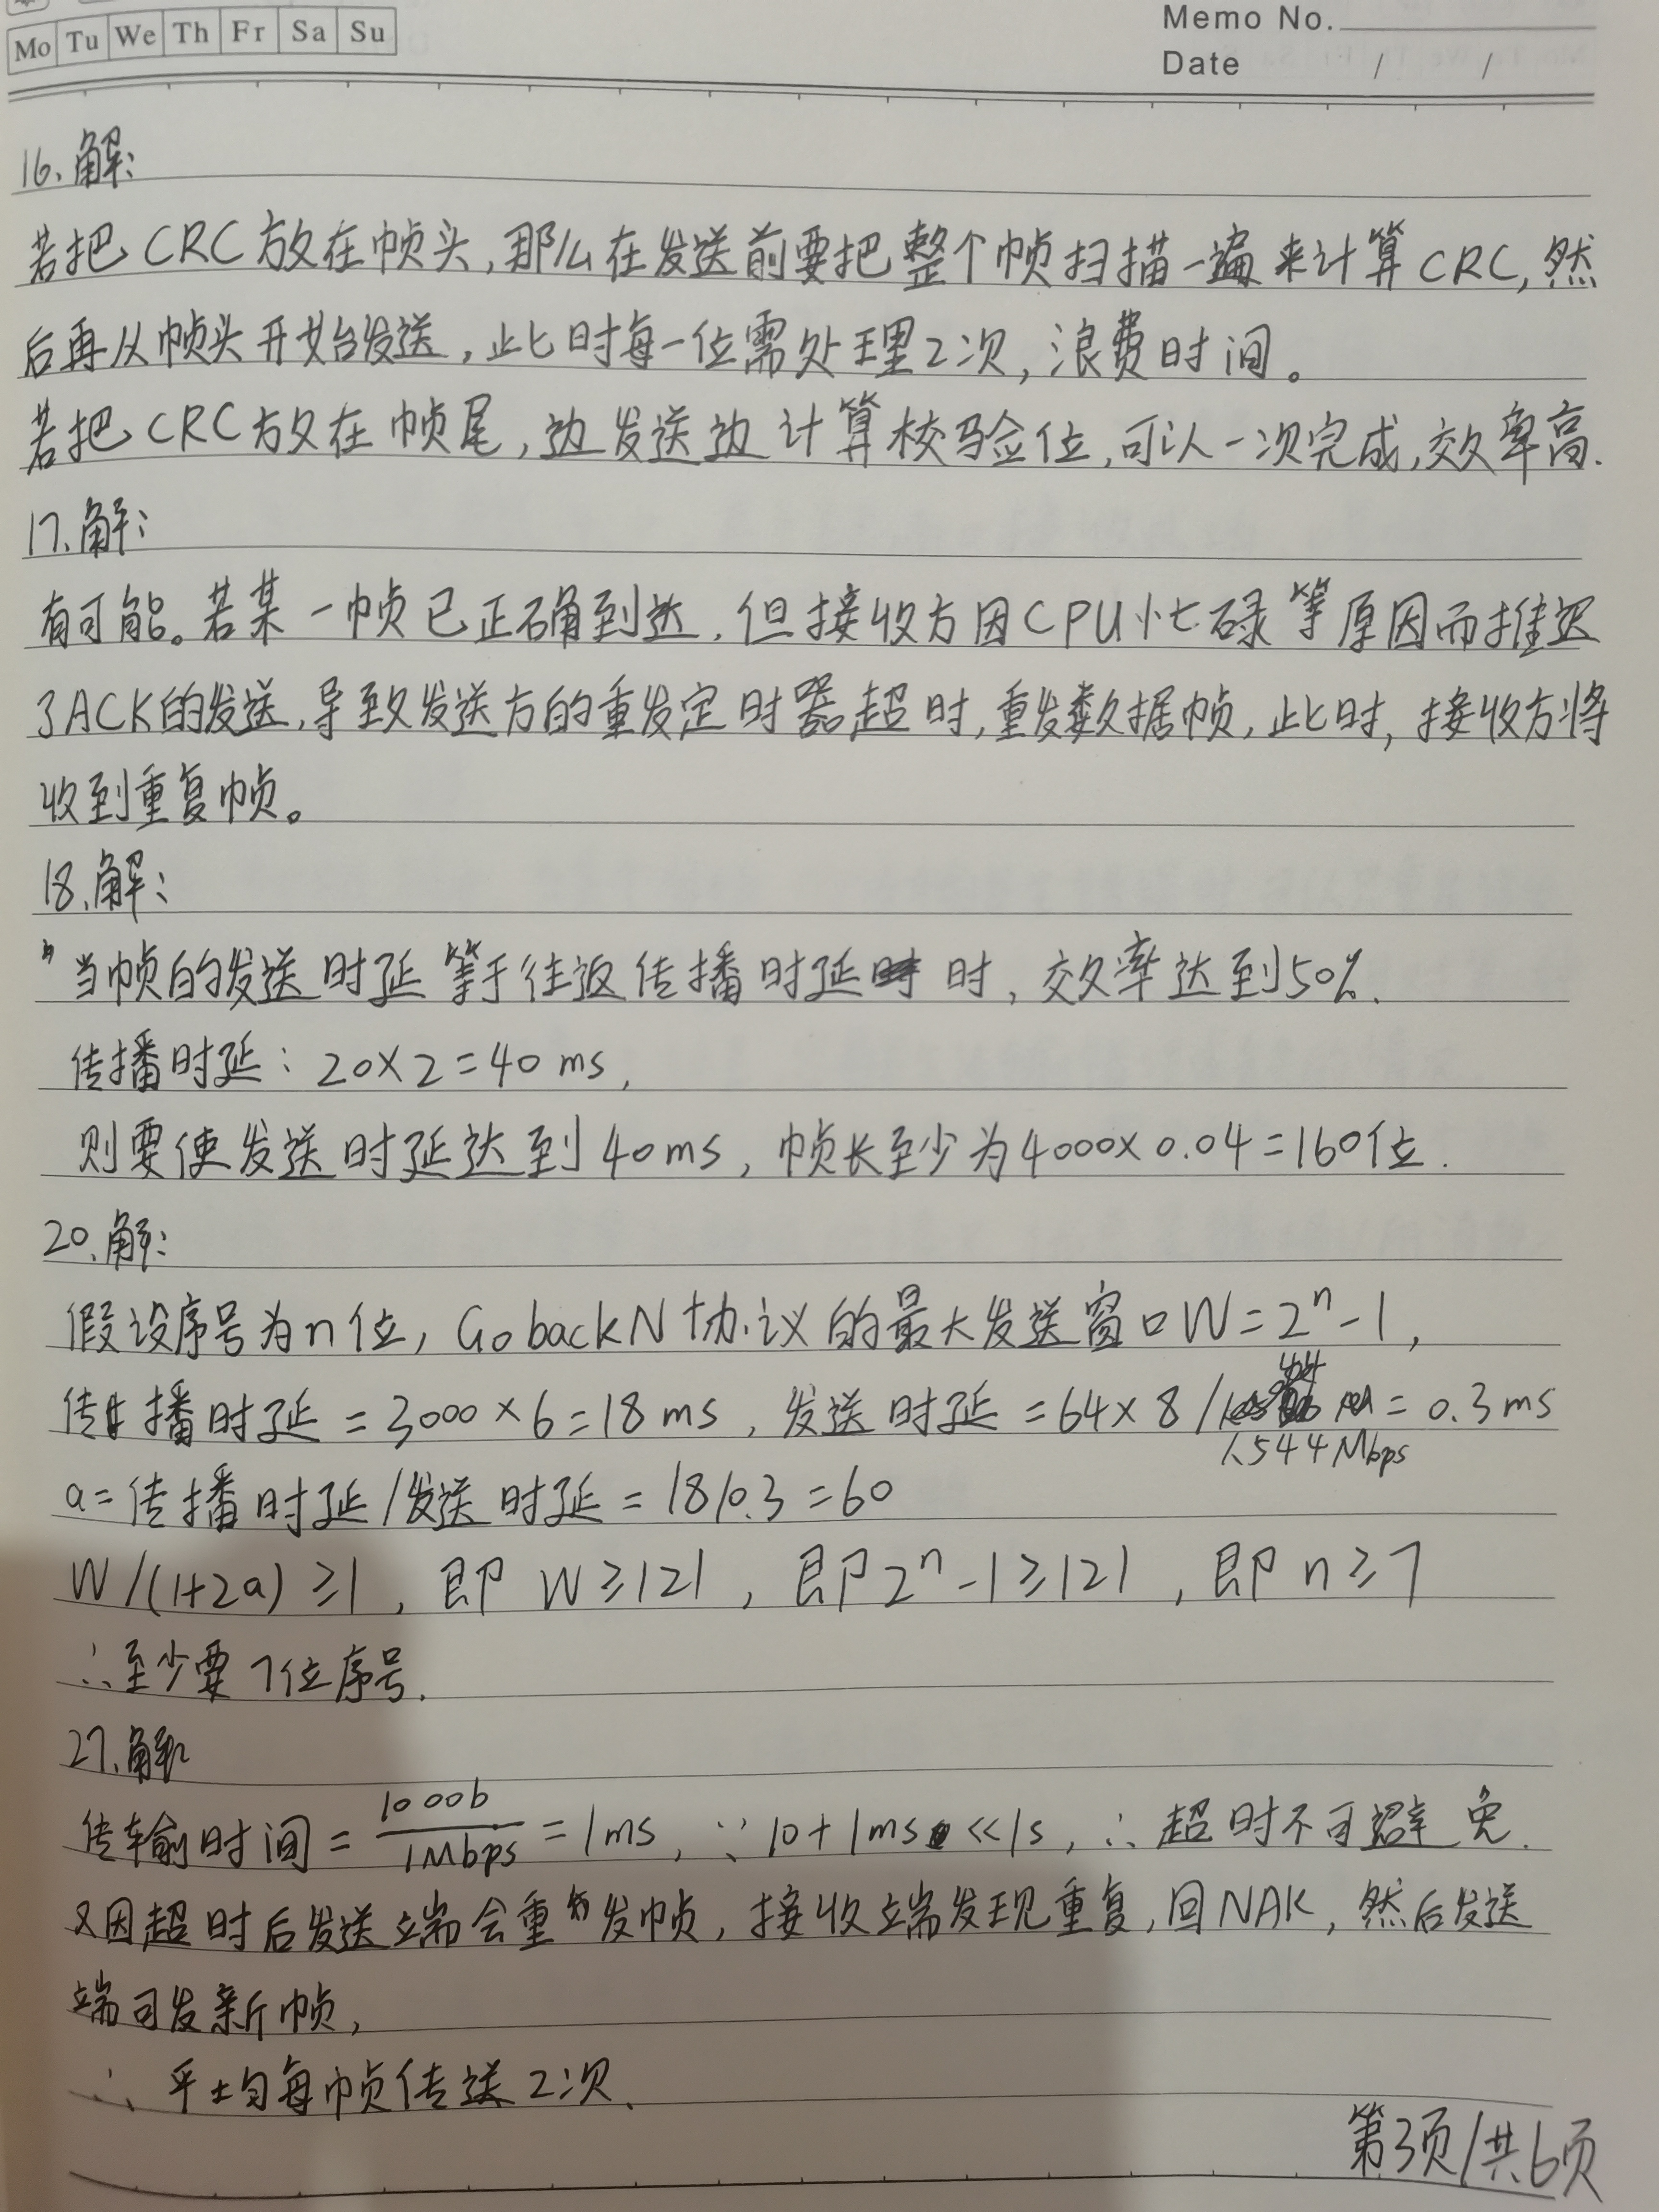 Mo Tu We Th Fr Sa Su
Memo No.
Date / /
16、解:
若把CRC放在帧头,那么在发送前要把整个帧扫描一遍来计算CRC,然
后再从帧头开始发送,此时每一位需处理2次,浪费时间。
若把CRC放在帧尾,边发送边计算校验位,可以一次完成,效率高.
17、解:
有可能。若某一帧已正确到达,但接收方因CPU忙碌等原因而推迟
了ACK的发送,导致发送方的重发定时器超时,重发数据帧,此时,接收方将
收到重复帧。
18、解:
当帧的发送时延等于往返传播时延时,效率达到50%.
传播时延:20×2=40ms,
则要使发送时延达到40ms,帧长至少为4000×0.04=160位.
20、解:
假设序号为n位,Go back N协议的最大发送窗口W=2ⁿ-1,
传播时延=3000×6=18ms,发送时延=64×8/1.544Mbps=0.3ms
a=传播时延/发送时延=18/0.3=60
W/(1+2a)≥1,即W≥121,即2ⁿ-1≥121,即n≥7
∴至少要7位序号.
27、解:
传输时间=1000b/1Mbps=1ms,∵10+1ms<<1s,∴超时不可避免.
又因超时后发送端会重发帧,接收端发现重复,回NAK,然后发送
端可发新帧,
∴平均每帧传送2次.
第3页/共6页